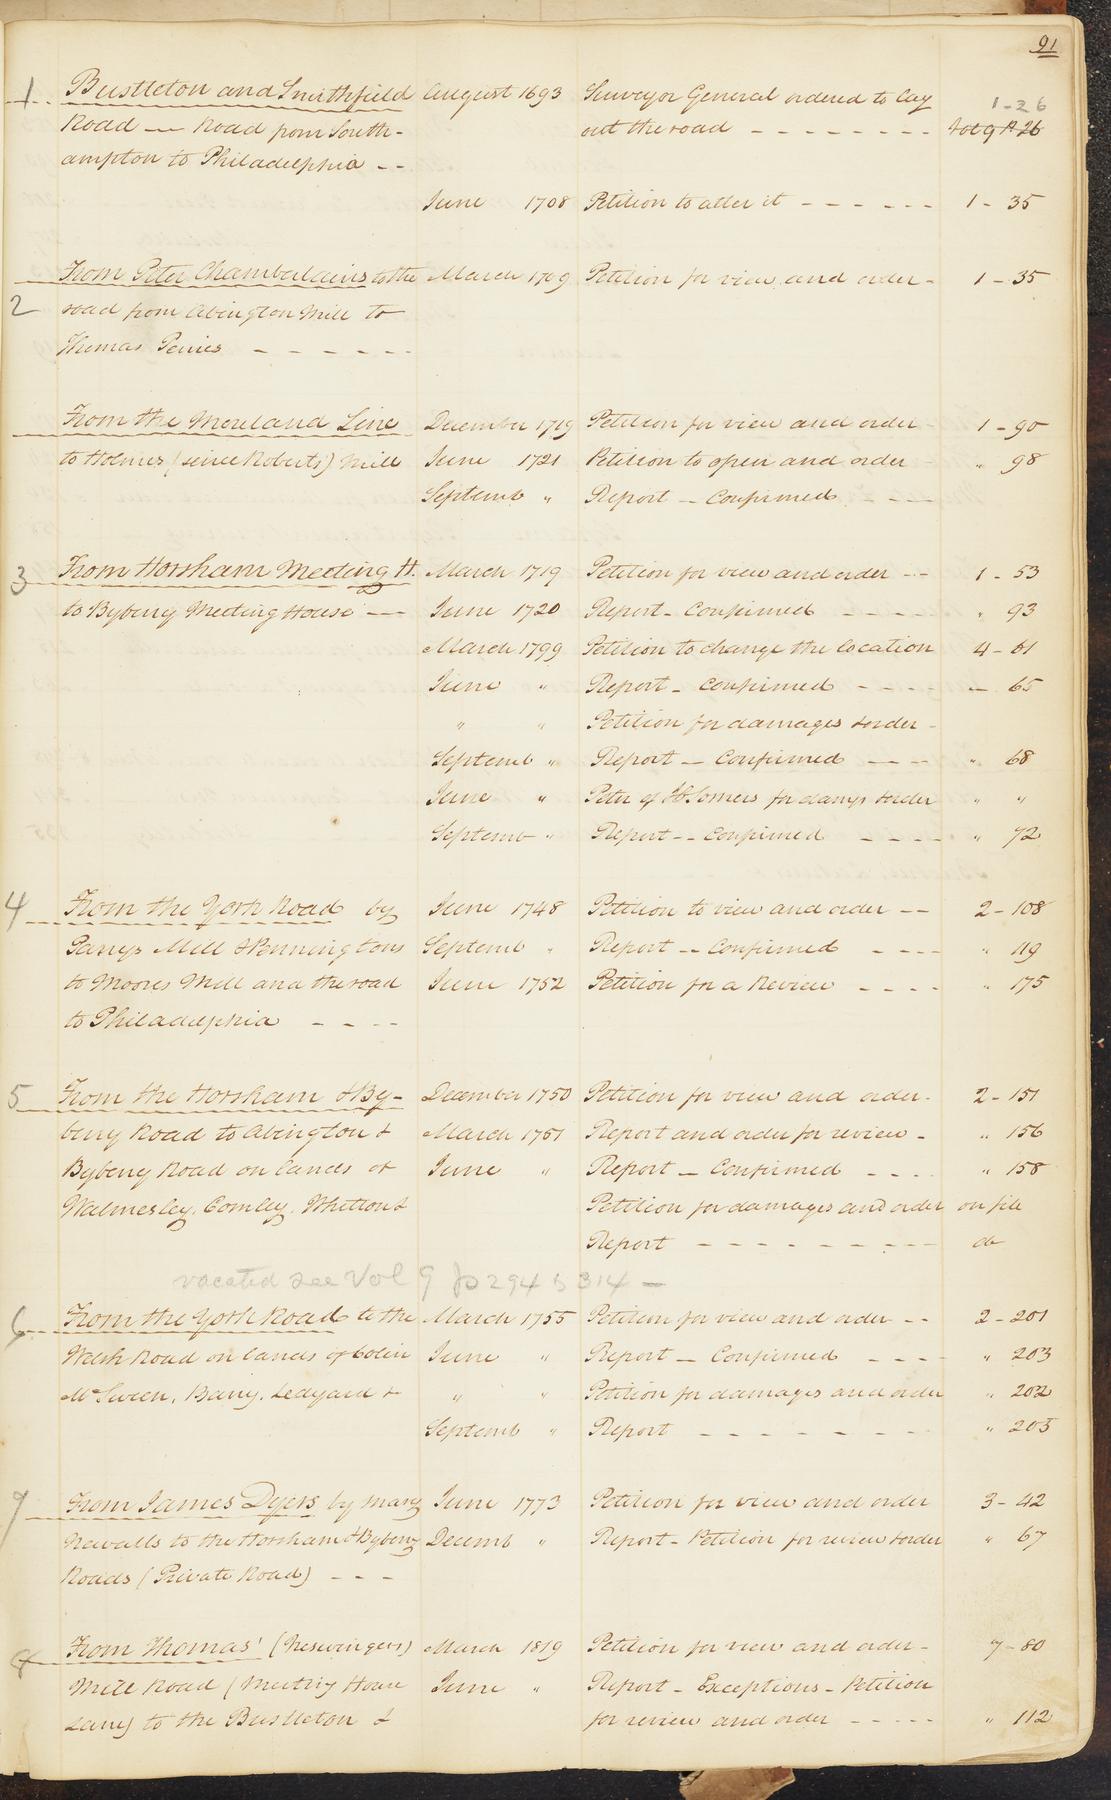 91
1 Bustleton and Smithfield August 1693 Surveyor General ordered to lay 1-26
Road — Road from South- out the road - - - - - - - - Vol 9 P 26
ampton to Philadelphia - -
June 1708 Petition to alter it - - - - - - 1 - 35
From Peter Chamberlains to the March 1709 Petition for view and order - 1 - 35
2 road from Abington Mill to
Thomas - - - - - -
From the Moreland Line December 1719 Petition for view and order - 1 - 90
to Holmes (since Roberts) Mill June 1721 Petition to open and order - " 98
Septemb " Report — Confirmed - - -
3 From Horsham Meeting H. March 1719 Petition for view and order - - 1 - 53
to Byberry Meeting House — June 1720 Report - Confirmed - - - - - " 93
March 1799 Petition to change the location 4 - 61
June " Report - Confirmed - - - - — 65
" " Petition for damages & order -
Septemb " Report — Confirmed - - - " 68
June " Petn of Somers for damgs & order " "
Septemb " Report - - Confirmed - - - - " 72
4 From the York Road by June 1748 Petition to view and order - - 2 - 108
Parrys Mill & Penningtons Septemb " Report - - Confirmed - - - - " 119
to Moores Mill and the road June 1752 Petition for a Review - - - - " 175
to Philadelphia - - - -
5 From the Horsham & By- December 1750 Petition for view and order - 2 - 151
berry Road to Abington & March 1751 Report and order for review - " 156
Byberry Road on lands of June " Report — Confirmed - - - - " 158
Walmesley, Comley, Whitton & Petition for damages and order on file
Report - - - - - - - - - do
vacated see Vol 9 p 294 & 314 —
6 From the York Road to the March 1755 Petition for view and order - - 2 - 201
Welsh Road on lands of Colin June " Report — Confirmed - - - - " 203
McSween, Barry, Ledyard & " " Petition for damages and order " 202
Septemb " Report - - - - - - - " 205
7 From James Dyers by Mary June 1773 Petition for view and order 3 - 42
Newalls to the Horsham & Byberry Decemb " Report - Petition for review & order " 67
Roads (Private Road) - - -
8 From Thomas' March 1819 Petition for view and order - 7 - 80
Mill Road (Meeting House June " Report - Exceptions - Petition
Lane) to the Bustleton & for review and order - - - - - " 112